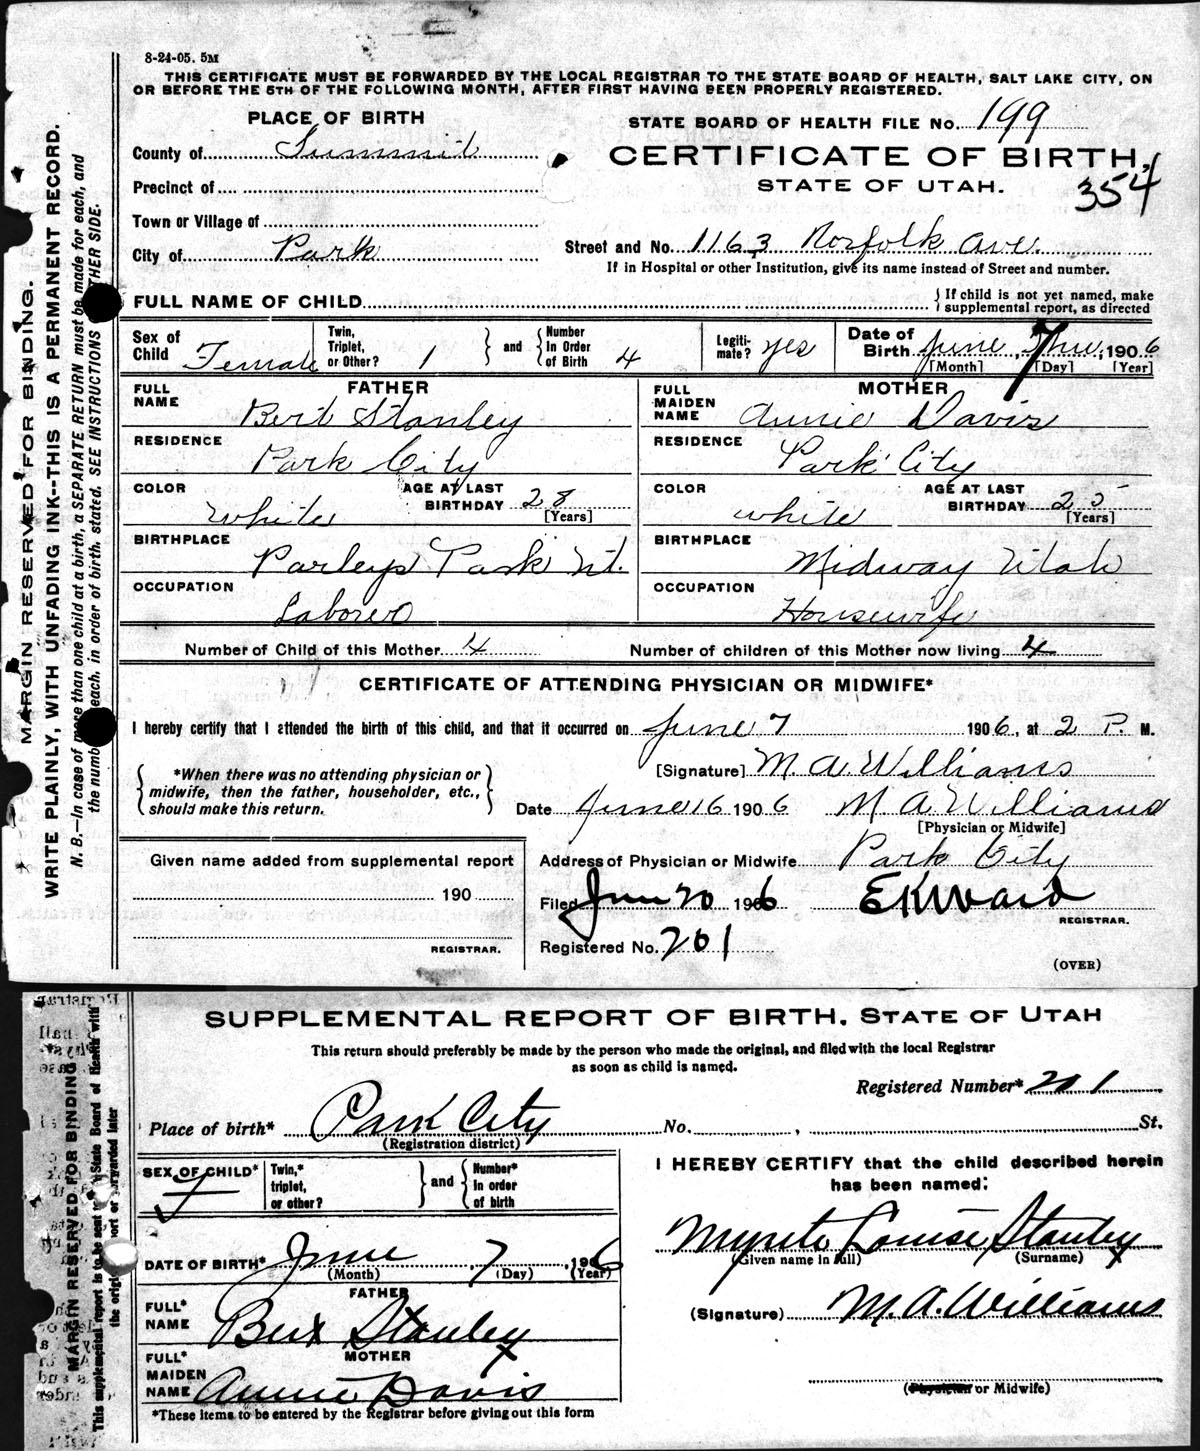 8-24-05. 5M
THIS CERTIFICATE MUST BE FORWARDED BY THE LOCAL REGISTRAR TO THE STATE BOARD OF HEALTH, SALT LAKE CITY, ON
OR BEFORE THE 5TH OF THE FOLLOWING MONTH, AFTER FIRST HAVING BEEN PROPERLY REGISTERED.
PLACE OF BIRTH
STATE BOARD OF HEALTH FILE No. 199
County of Summit
CERTIFICATE OF BIRTH,
Precinct of
STATE OF UTAH.
354
Town or Village of
City of Park
Street and No. 1163 Norfolk Ave.
If in Hospital or other Institution, give its name instead of Street and number.
FULL NAME OF CHILD
} If child is not yet named, make
supplemental report, as directed
Sex of Child Female
Twin, Triplet, or Other? 1
} and {
Number In Order of Birth 4
Legiti-mate? yes
Date of Birth June 7, 1906
[Month] [Day] [Year]
FATHER
MOTHER
FULL NAME Bert Stanley
FULL MAIDEN NAME Annie Davis
RESIDENCE Park City
RESIDENCE Park City
COLOR White
AGE AT LAST BIRTHDAY 28 [Years]
COLOR white
AGE AT LAST BIRTHDAY 25 [Years]
BIRTHPLACE Parleys Park Ut.
BIRTHPLACE Midway Utah
OCCUPATION Laborer
OCCUPATION Housewife
Number of Child of this Mother 4
Number of children of this Mother now living 4
CERTIFICATE OF ATTENDING PHYSICIAN OR MIDWIFE*
I hereby certify that I attended the birth of this child, and that it occurred on June 7 1906, at 2 P. M.
{ *When there was no attending physician or
midwife, then the father, householder, etc.,
should make this return. }
[Signature] M. A. Williams
Date June 16 1906 M A Williams
[Physician or Midwife]
Given name added from supplemental report
190
REGISTRAR.
Address of Physician or Midwife Park City
Filed Jun 20 1906 E K Ward
REGISTRAR.
Registered No. 201
(OVER)
MARGIN RESERVED FOR BINDING.
WRITE PLAINLY, WITH UNFADING INK--THIS IS A PERMANENT RECORD.
N. B.—In case of more than one child at a birth, a SEPARATE RETURN must be made for each, and
the number each, in order of birth, stated. SEE INSTRUCTIONS OTHER SIDE.
SUPPLEMENTAL REPORT OF BIRTH, STATE OF UTAH
This return should preferably be made by the person who made the original, and filed with the local Registrar
as soon as child is named.
Registered Number* 201
Place of birth* Park City No. , St.
(Registration district)
SEX OF CHILD* f
Twin,* triplet, or other?
} and {
Number* In order of birth
I HEREBY CERTIFY that the child described herein
has been named:
DATE OF BIRTH* June 7, 1906
(Month) (Day) (Year)
Louise Stanley
(Given name in full) (Surname)
FATHER
FULL* NAME Bert Stanley
(Signature) M. A. Williams
MOTHER
FULL* MAIDEN NAME Annie Davis
(Physician or Midwife)
*These items to be entered by the Registrar before giving out this form
MARGIN RESERVED FOR BINDING